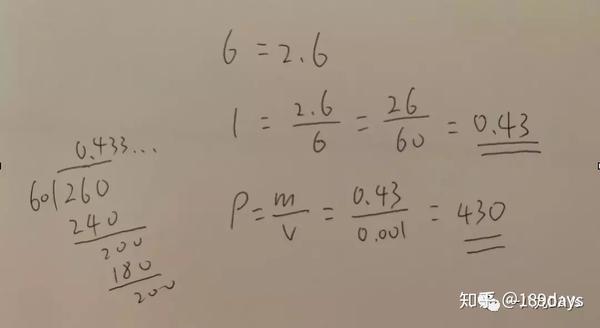 6 = 2.6
1 = 2.6/6 = 26/60 = 0.43
0.433...
60⟌260
240
200
180
200
P = m/v = 0.43/0.001 = 430
知乎 @189days